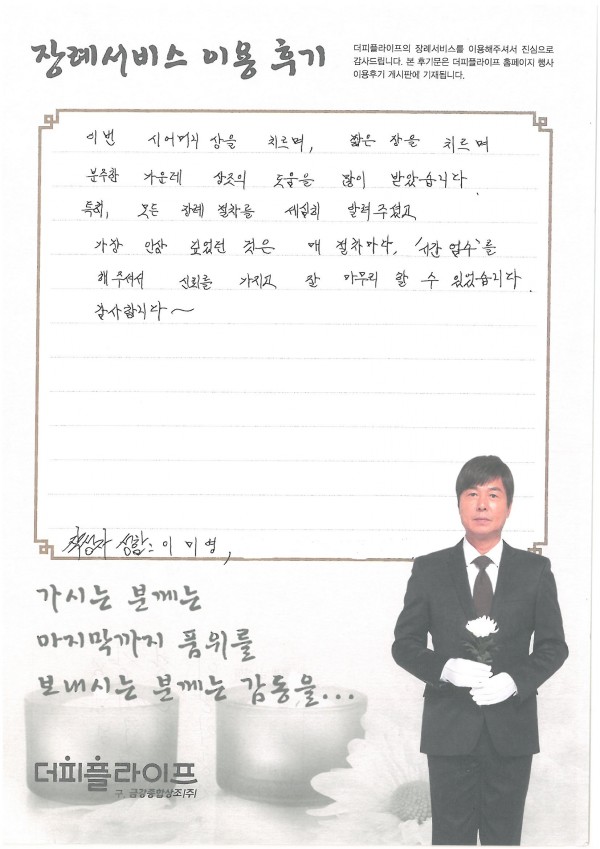 장례서비스 이용 후기
더피플라이프의 장례서비스를 이용해주셔서 진심으로
감사드립니다. 본 후기문은 더피플라이프 홈페이지 행사
이용후기 게시판에 기재됩니다.
이번 시어머니 상을 치르며, 짧은 장을 치르며
분주한 가운데 상조의 도움을 많이 받았습니다.
특히, 모든 장례 절차를 세심히 알려주셨고
가장 인상 깊었던 것은 매 절차마다, '시간 엄수'를
해주셔서 신뢰를 가지고 잘 마무리 할 수 있었습니다.
감사합니다~
작성자 성함: 이미영,
가시는 분께는
마지막까지 품위를
보내시는 분께는 감동을...
더피플라이프
구. 금강종합상조(주)